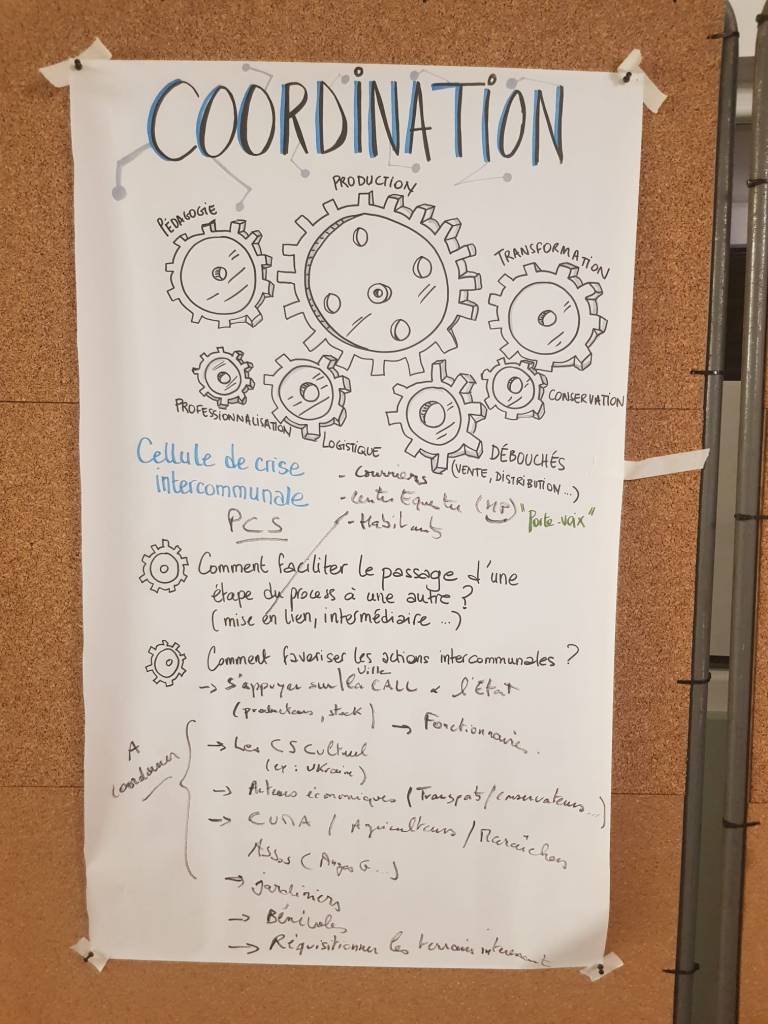 COORDINATION
PRODUCTION
PÉDAGOGIE
TRANSFORMATION
CONSERVATION
PROFESSIONNALISATION
LOGISTIQUE
DÉBOUCHÉS
(VENTE, DISTRIBUTION...)
Cellule de crise
intercommunale
PCS
- Courriers
- Centre Equestre
- Habitants
"Porte-voix"
Comment faciliter le passage d'une
étape du process à une autre ?
(mise en lien, intermédiaire ...)
Comment favoriser les actions intercommunales ?
Ville
→ S'appuyer sur / la CALL & l'Etat
(producteurs, stock) → Fonctionnaires.
A
coordonner
→ Les CS Culturel
(ex : Ukraine)
→ Acteurs économiques (Transpats / conservateurs...)
→ CUMA / Agriculteurs / Maraîchers
Assos (Anges G...)
→ jardiniers
→ Bénévoles
→ Réquisitionner les terrains